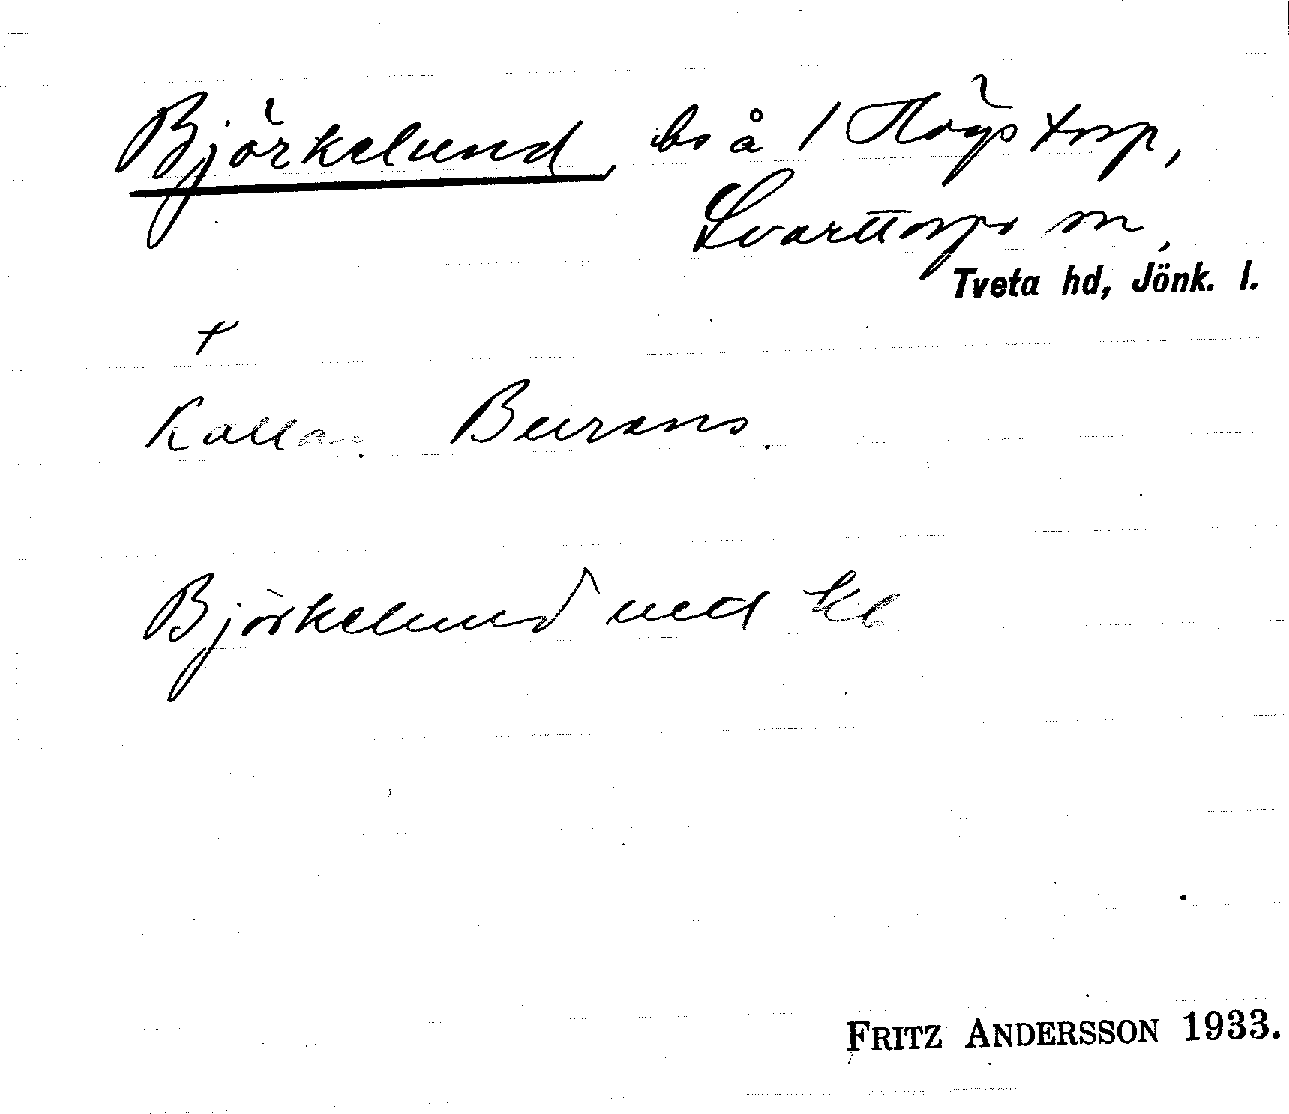 Björkelund, bs å 1 Högstorp,
Svarttorps sn,
Tveta hd, Jönk. l.
+
Kallas Burans.
Björkelund utd kb
FRITZ ANDERSSON 1933.